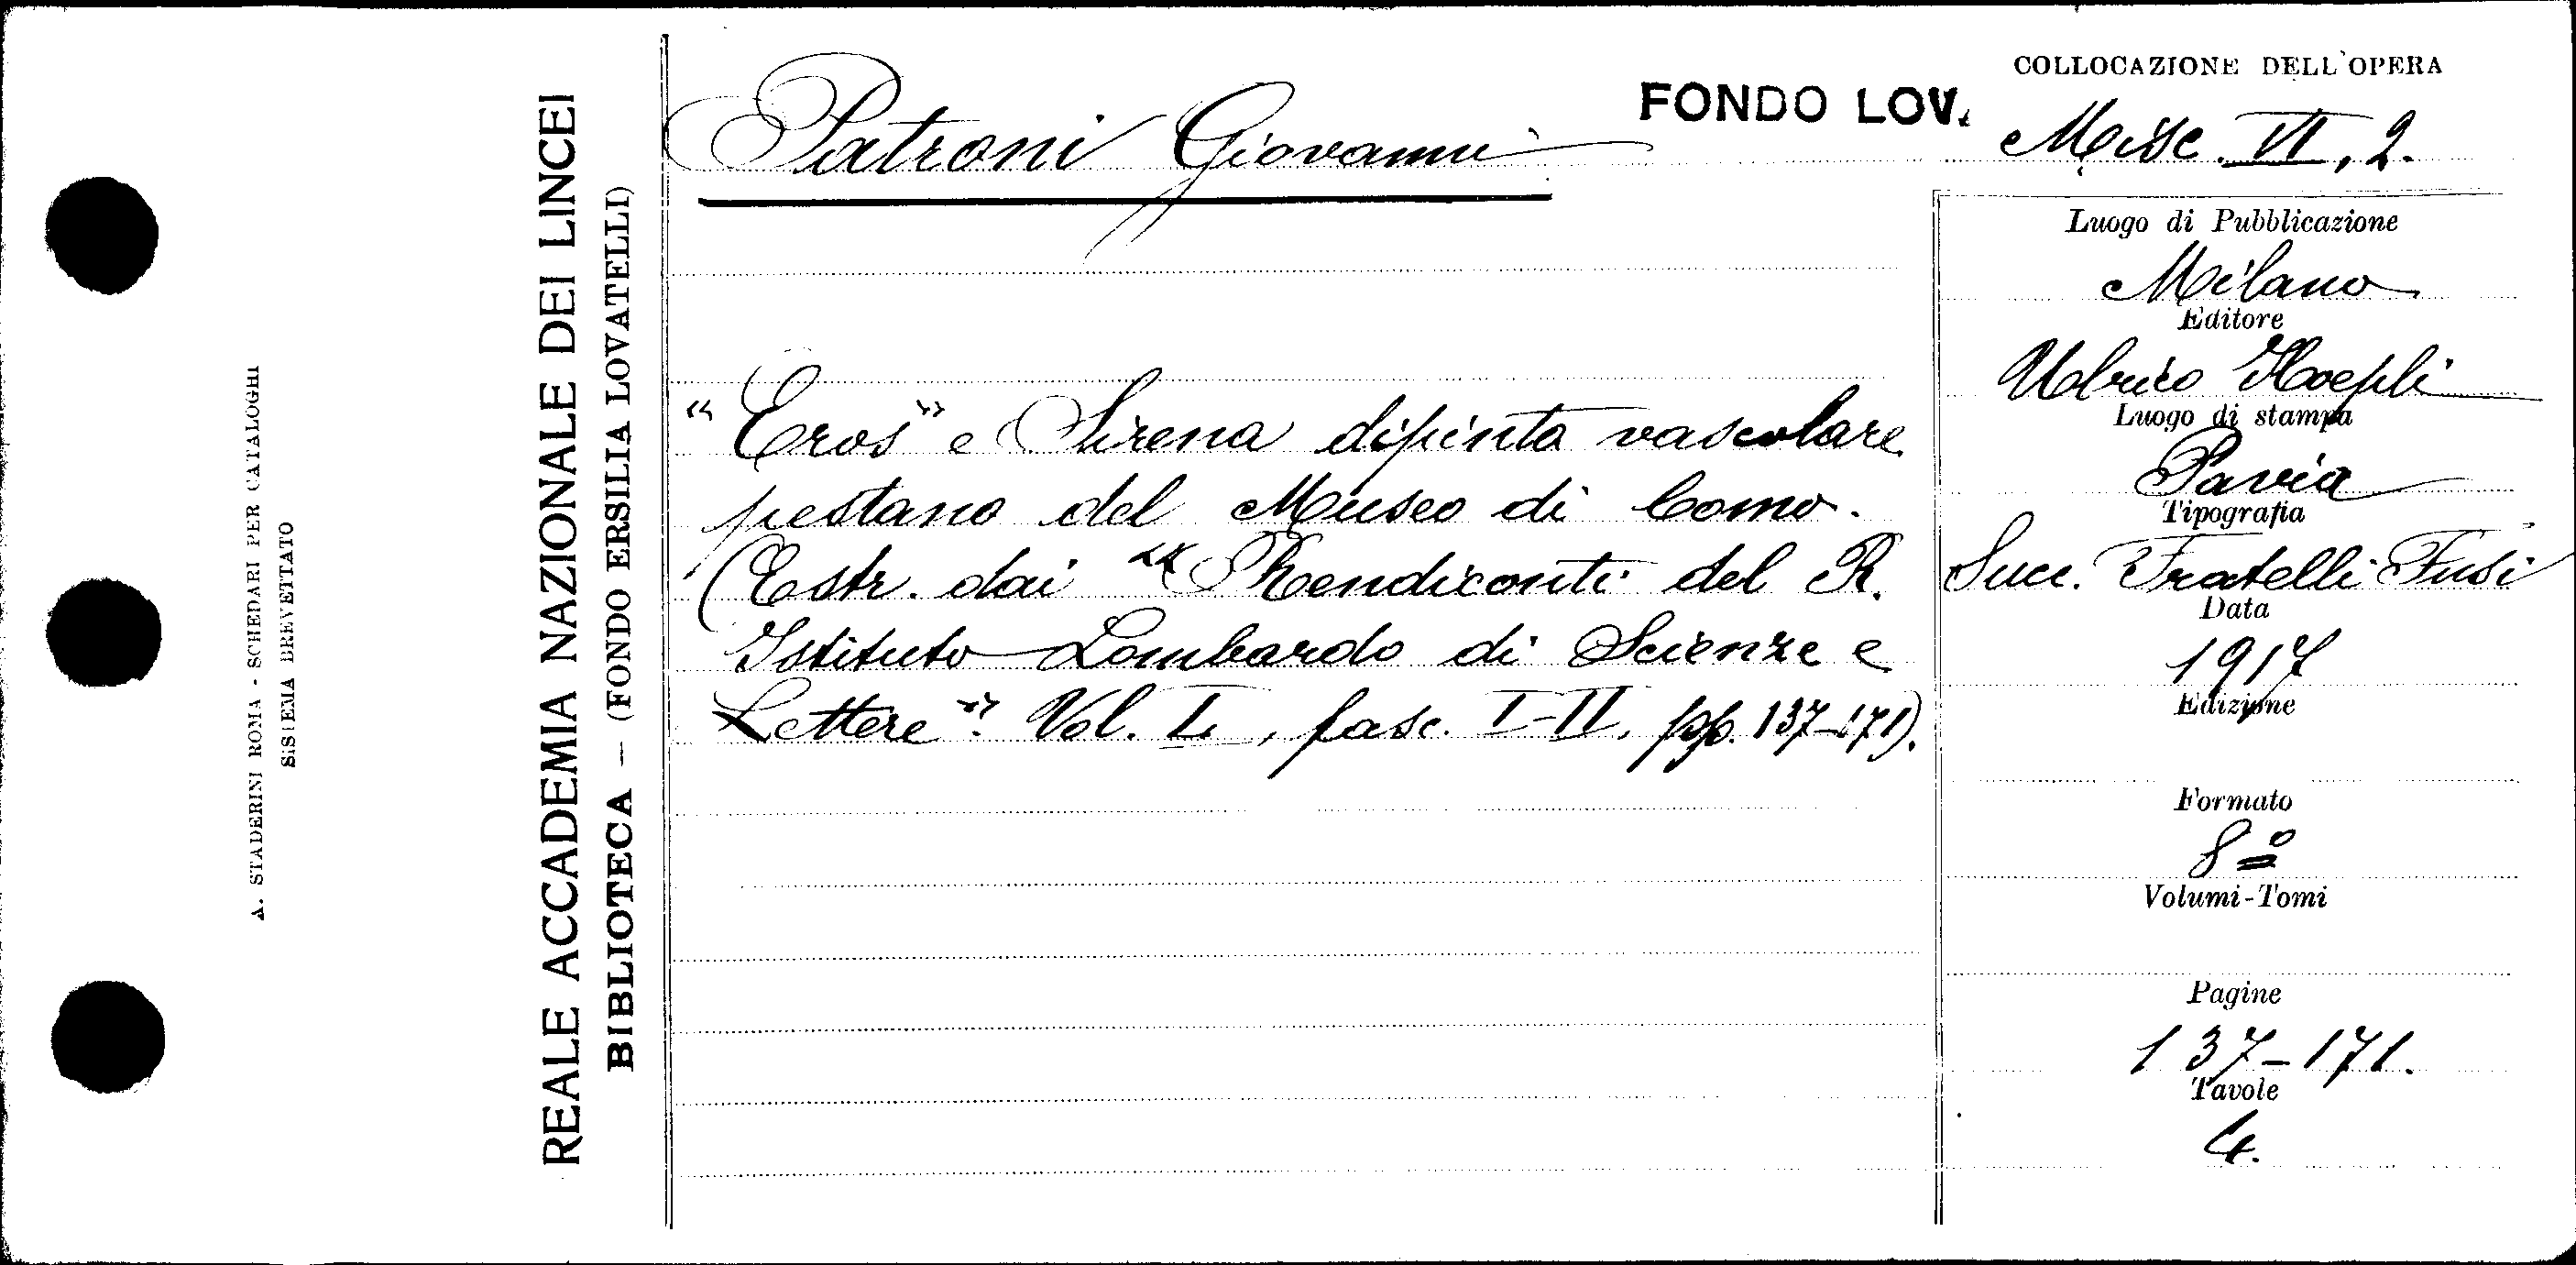 A. STADERINI ROMA - SCHEDARI PER CATALOGHI
SISTEMA BREVETTATO
REALE ACCADEMIA NAZIONALE DEI LINCEI
BIBLIOTECA — (FONDO ERSILIA LOVATELLI)
Patroni Giovanni
FONDO LOV.
COLLOCAZIONE DELL'OPERA
Misc. VI, 2.
"Eros" e Sirena dipinta vascolare
pestano del Museo di Como.
(Estr. dai "Rendiconti del R.
Istituto Lombardo di Scienze e
Lettere". Vol. L, fasc. I-II, pp. 137-171).
Luogo di Pubblicazione
Milano
Editore
Ulrico Hoepli
Luogo di stampa
Pavia
Tipografia
Succ. Fratelli Fusi
Data
1917
Edizione
Formato
8º
Volumi-Tomi
Pagine
137-171.
Tavole
4.